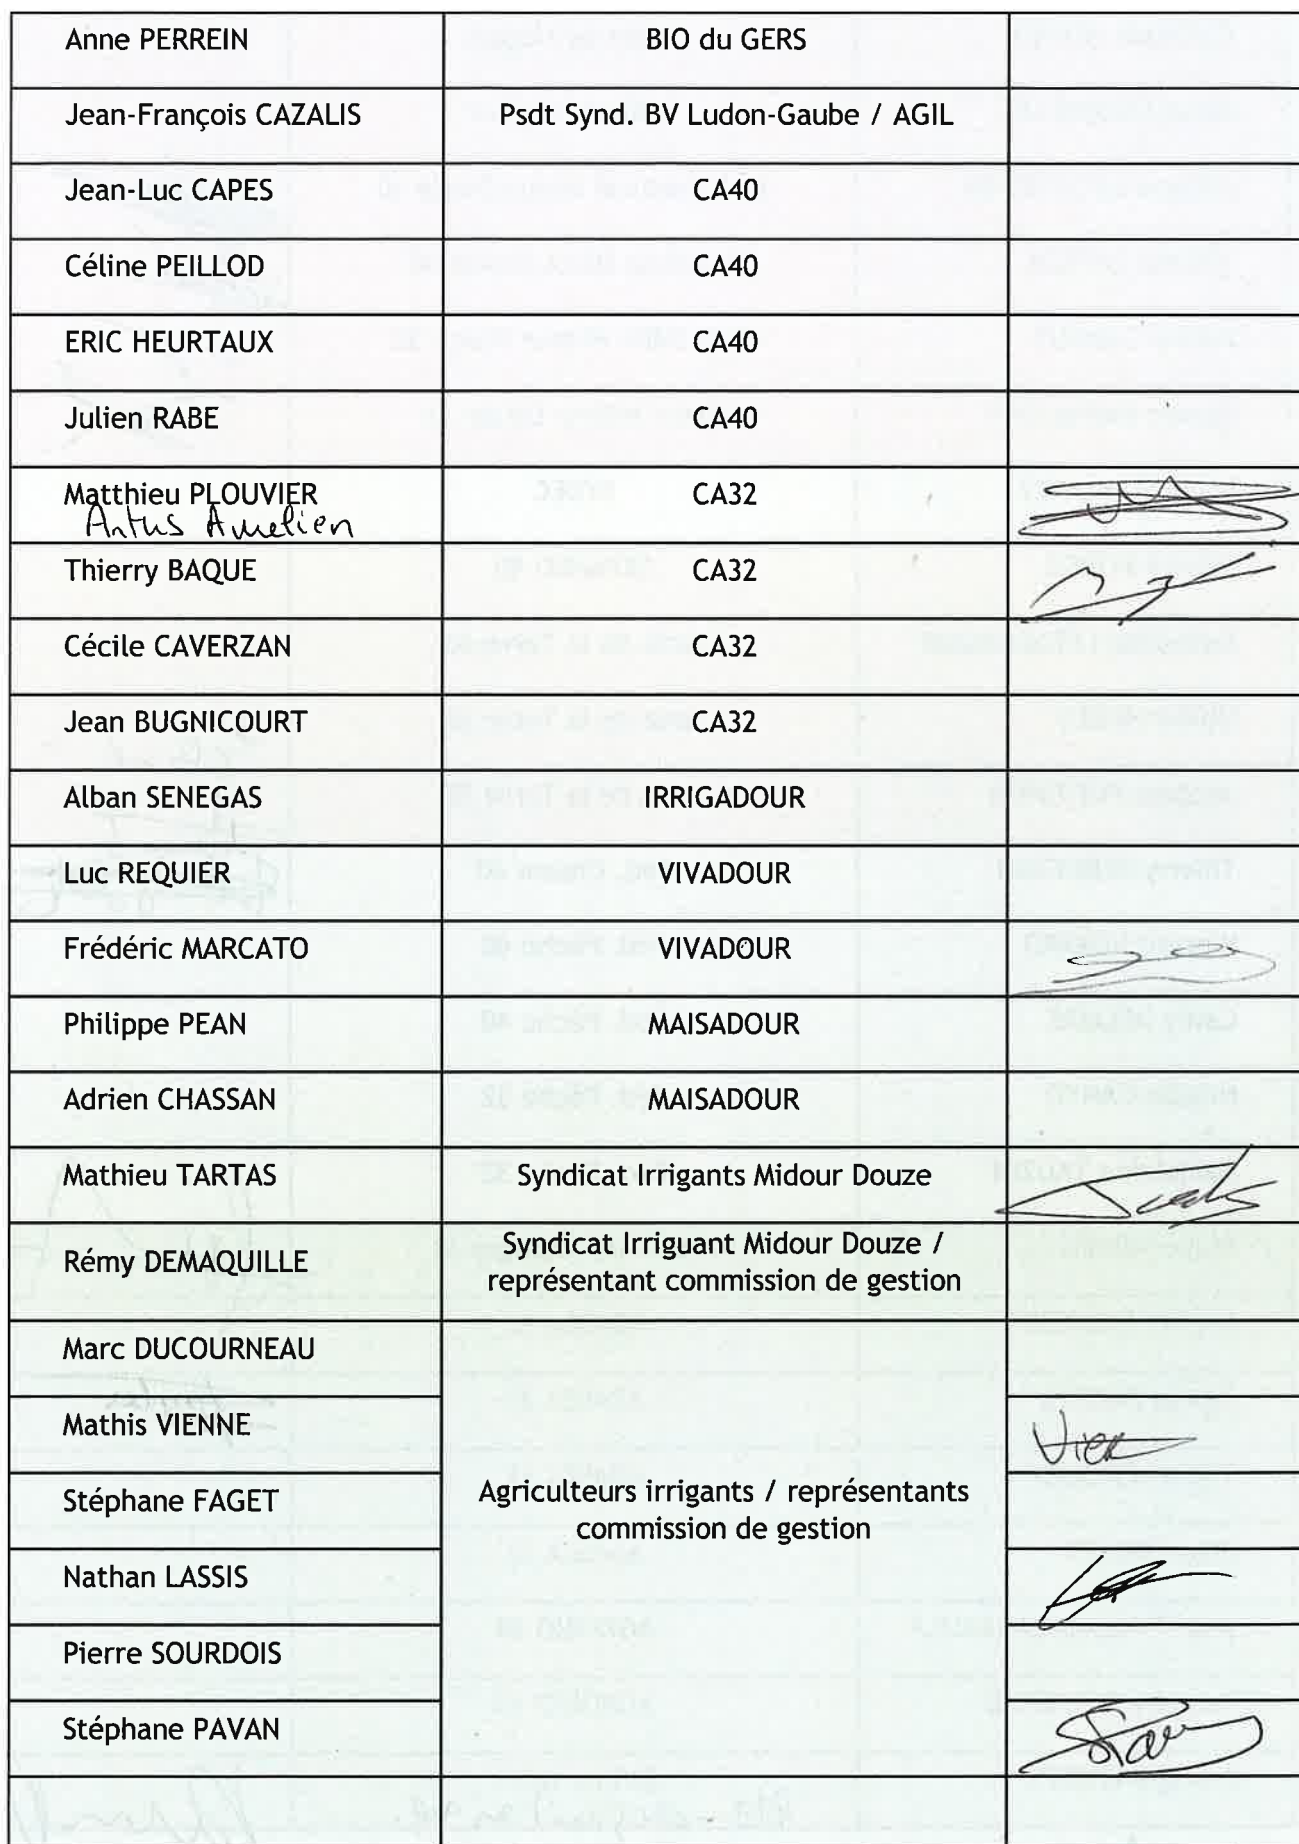 Anne PERREIN BIO du GERS
Jean-François CAZALIS Psdt Synd. BV Ludon-Gaube / AGIL
Jean-Luc CAPES CA40
Céline PEILLOD CA40
ERIC HEURTAUX CA40
Julien RABE CA40
Matthieu PLOUVIER CA32
Antus Amelien
Thierry BAQUE CA32
Cécile CAVERZAN CA32
Jean BUGNICOURT CA32
Alban SENEGAS IRRIGADOUR
Luc REQUIER VIVADOUR
Frédéric MARCATO VIVADOUR
Philippe PEAN MAISADOUR
Adrien CHASSAN MAISADOUR
Mathieu TARTAS Syndicat Irrigants Midour Douze
Rémy DEMAQUILLE Syndicat Irriguant Midour Douze /
représentant commission de gestion
Marc DUCOURNEAU
Mathis VIENNE
Stéphane FAGET Agriculteurs irrigants / représentants
commission de gestion
Nathan LASSIS
Pierre SOURDOIS
Stéphane PAVAN